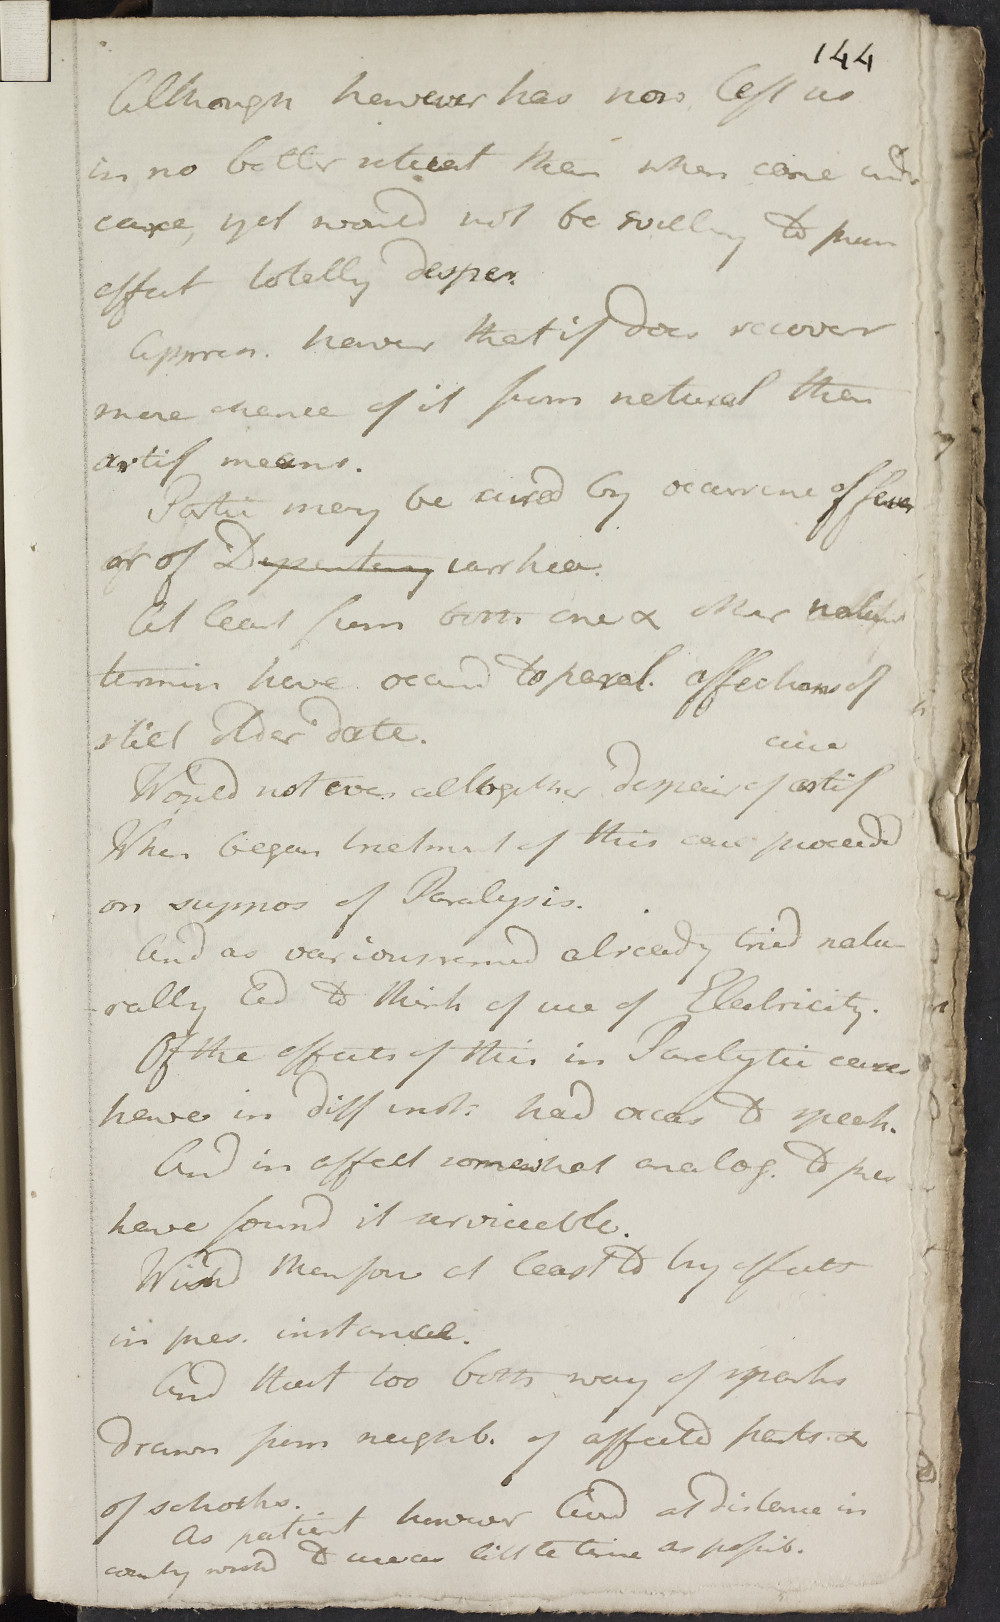 144
Although however has now left us
in no better situat than when came und
care, yet would not be willing to pron
affect totally desper.
Appreh. however that if does recover
more chance of it from natural than
artif means.
Patie may be cured by occurrene of fever
or of Dysentery iarrhea.
At least from both one & other natur
termin have occurd to paral. affections of
still older date.
cure
Would not even alltogether despair of artif
When began treatment of this case proceedd
on suppos of Paralysis.
And as various remed already tried natu-
rally led to think of use of Electricity.
Of the effects of this in Paralytic cases
have in diff inst: had occas to speak.
And in affect somewhat analog. to pres
have found it serviceable.
Wishd therefore at least to try effects
in pres. instance.
And that too both way of sparks
drawn from neighb. of affected parts. &
of schocks.
As patient however livd at distance in
country wishd to use as little time as possib.